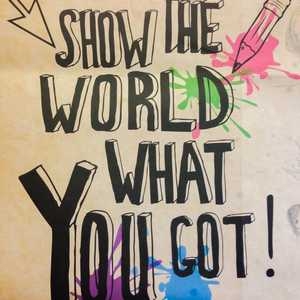 SHOW THE
WORLD
WHAT
YOU GOT!